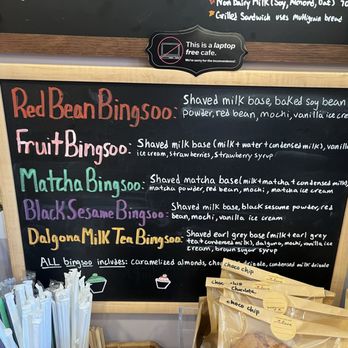 Non Dairy Milk (Soy, Almond, Oat)
Grilled Sandwich uses multigrain bread
This is a laptop
free cafe.
We're sorry for the inconvenience!
Red Bean Bingsoo: Shaved milk base, baked soy bean
powder, red bean, mochi, vanilla ice
Fruit Bingsoo: Shaved milk base (milk + water + condensed milk),
ice cream, strawberries, strawberry syrup
Matcha Bingsoo: Shaved matcha base (milk + matcha + condensed milk),
matcha powder, red bean, mochi, matcha ice cream
Black Sesame Bingsoo: Shaved milk base, black sesame powder, red
bean, mochi, vanilla ice cream
Dalgona Milk Tea Bingsoo: Shaved earl grey base (milk + earl grey
tea + condensed milk), dalgona, mochi, vanilla ice
cream, brown sugar syrup
ALL bingsoo includes: caramelized almonds, condensed milk drizzle
choco chip
chocolate
choco chip